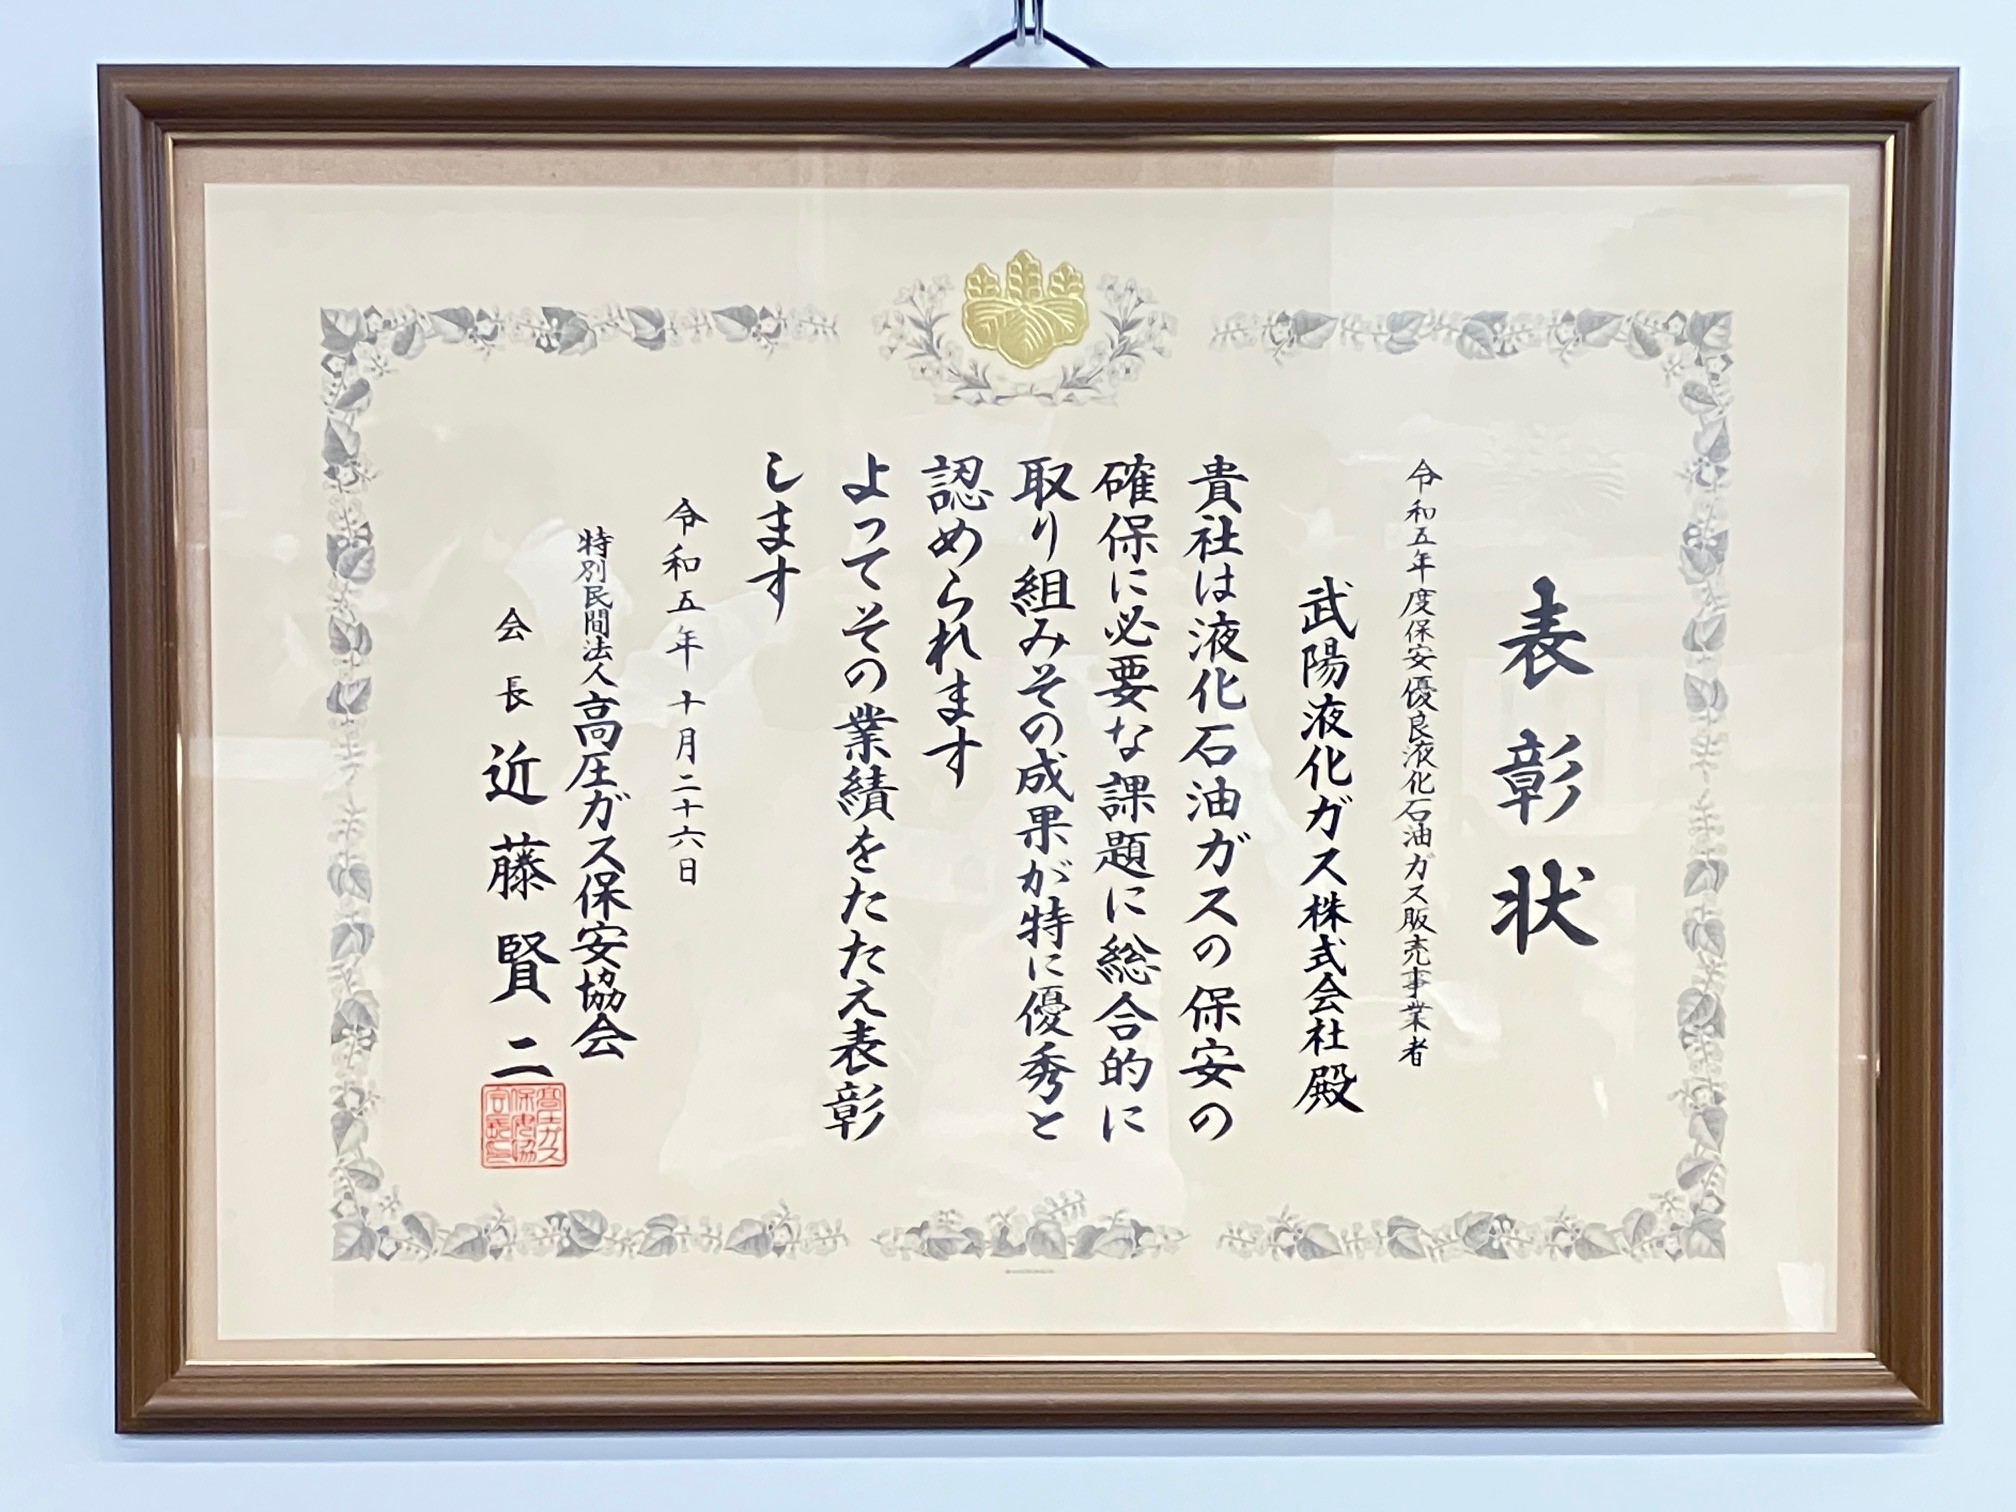 表彰状
令和五年度保安優良液化石油ガス販売事業者
武陽液化ガス株式会社殿
貴社は液化石油ガスの保安の
確保に必要な課題に総合的に
取り組みその成果が特に優秀と
認められます
よってその業績をたたえ表彰
します
令和五年十月二十六日
特別民間法人高圧ガス保安協会
会長近藤賢二